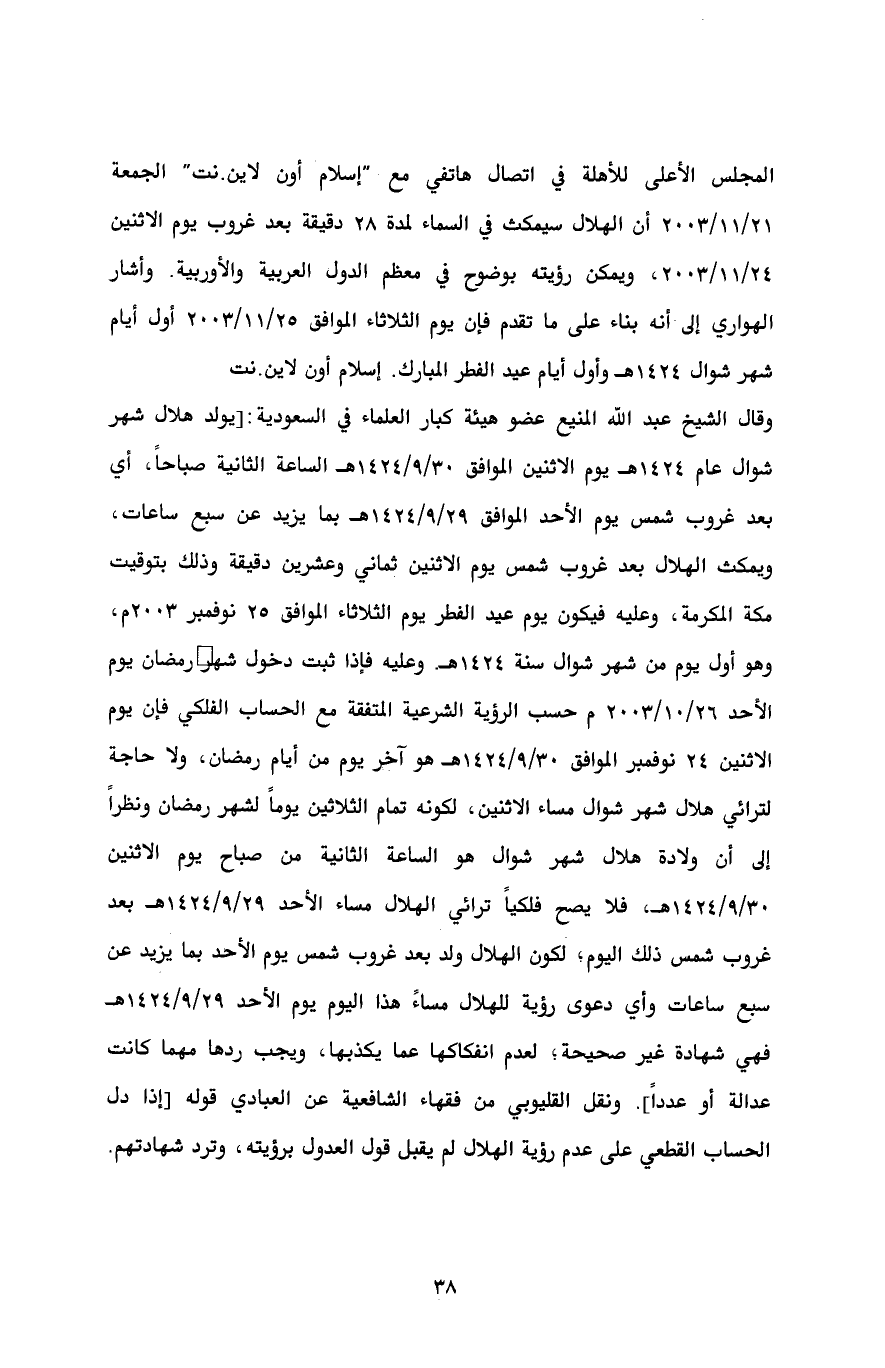 المجلس الأعلى للأهلة في اتصال هاتفي مع "إسلام أون لاين.نت" الجمعة
٢٠٠٣/١١/٢١ أن الهلال سيمكث في السماء لمدة ٢٨ دقيقة بعد غروب يوم الاثنين
٢٠٠٣/١١/٢٤، ويمكن رؤيته بوضوح في معظم الدول العربية والأوربية. وأشار
الهواري إلى أنه بناء على ما تقدم فإن يوم الثلاثاء الموافق ٢٠٠٣/١١/٢٥ أول أيام
شهر شوال ١٤٢٤هـ وأول أيام عيد الفطر المبارك. إسلام أون لاين.نت
وقال الشيخ عبد الله المنيع عضو هيئة كبار العلماء في السعودية:[يولد هلال شهر
شوال عام ١٤٢٤هـ يوم الاثنين الموافق ١٤٢٤/٩/٣٠هـ الساعة الثانية صباحاً، أي
بعد غروب شمس يوم الأحد الموافق ١٤٢٤/٩/٢٩هـ بما يزيد عن سبع ساعات،
ويمكث الهلال بعد غروب شمس يوم الاثنين ثماني وعشرين دقيقة وذلك بتوقيت
مكة المكرمة، وعليه فيكون يوم عيد الفطر يوم الثلاثاء الموافق ٢٥ نوفمبر ٢٠٠٣م،
وهو أول يوم من شهر شوال سنة ١٤٢٤هـ. وعليه فإذا ثبت دخول شهر رمضان يوم
الأحد ٢٠٠٣/١٠/٢٦ م حسب الرؤية الشرعية المتفقة مع الحساب الفلكي فإن يوم
الاثنين ٢٤ نوفمبر الموافق ١٤٢٤/٩/٣٠هـ هو آخر يوم من أيام رمضان، ولا حاجة
لترائي هلال شهر شوال مساء الاثنين، لكونه تمام الثلاثين يوماً لشهر رمضان ونظراً
إلى أن ولادة هلال شهر شوال هو الساعة الثانية من صباح يوم الاثنين
١٤٢٤/٩/٣٠هـ، فلا يصح فلكياً ترائي الهلال مساء الأحد ١٤٢٤/٩/٢٩هـ بعد
غروب شمس ذلك اليوم؛ لكون الهلال ولد بعد غروب شمس يوم الأحد بما يزيد عن
سبع ساعات وأي دعوى رؤية للهلال مساءً هذا اليوم يوم الأحد ١٤٢٤/٩/٢٩هـ
فهي شهادة غير صحيحة؛ لعدم انفكاكها عما يكذبها، ويجب ردها مهما كانت
عدالة أو عدداً]. ونقل القليوبي من فقهاء الشافعية عن العبادي قوله [إذا دل
الحساب القطعي على عدم رؤية الهلال لم يقبل قول العدول برؤيته، وترد شهادتهم.
٣٨